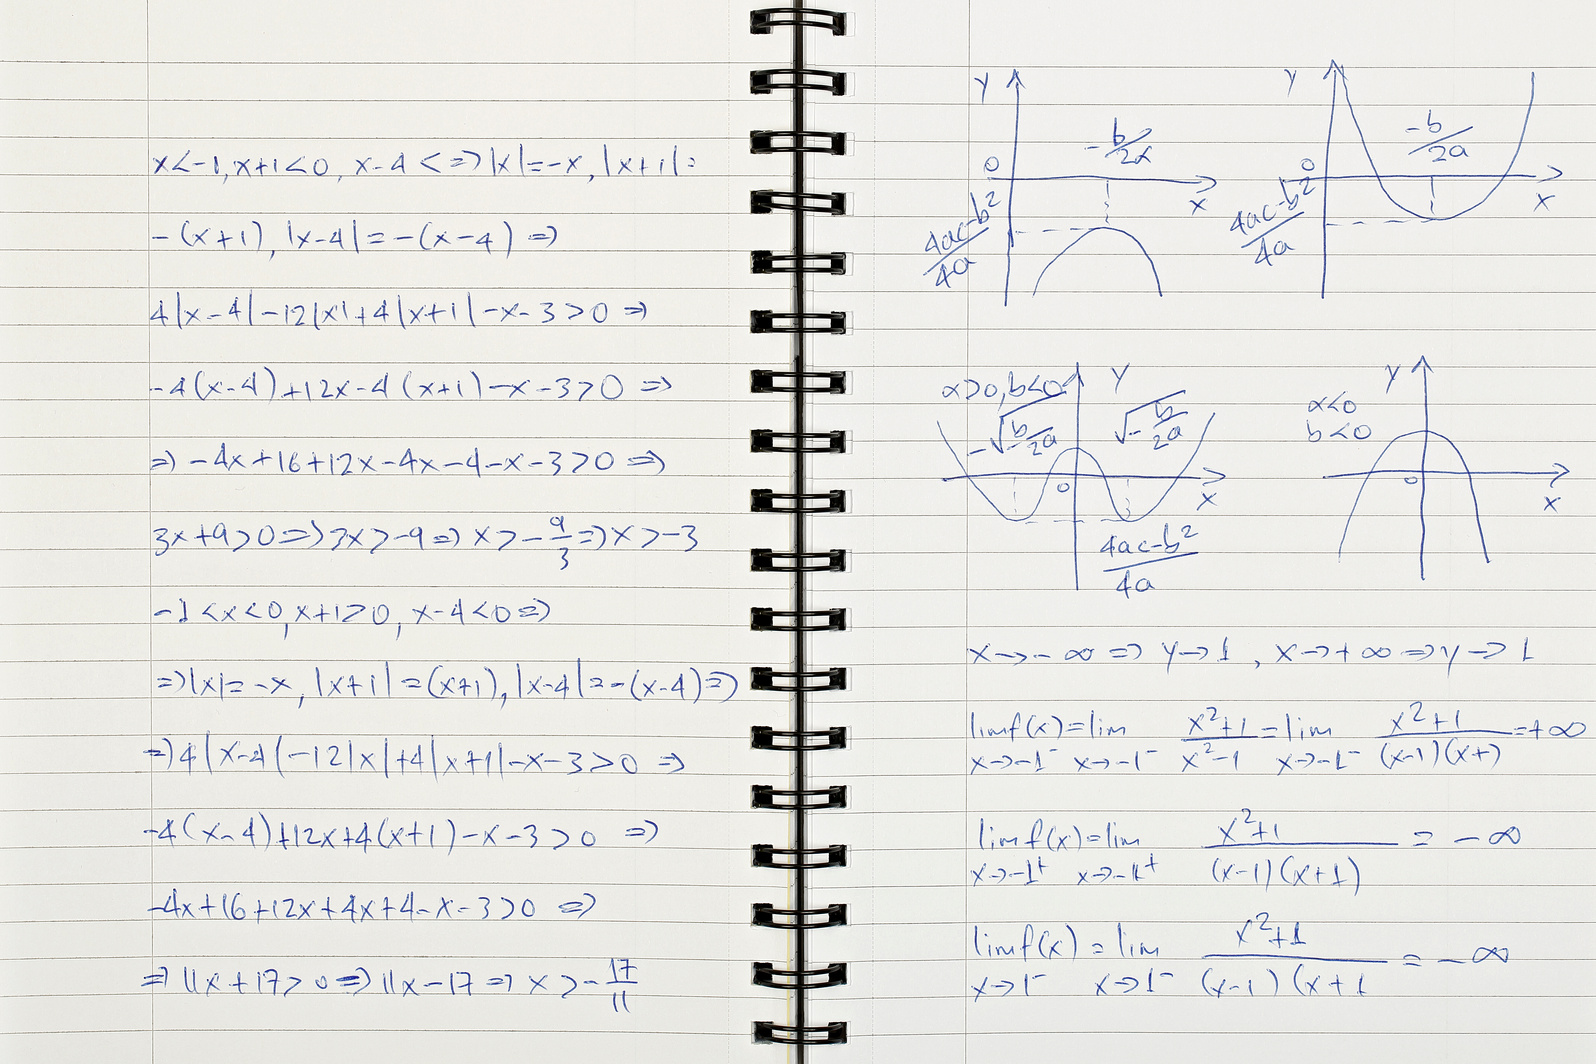 x<-1, x+1<0, x-4<=>|x|=-x, |x+1|=
-(x+1), |x-4|=-(x-4) =>
4|x-4|-12|x|+4|x+1|-x-3>0 =>
-4(x-4)+12x-4(x+1)-x-3>0 =>
=> -4x+16+12x-4x-4-x-3>0 =>
3x+9>0=>3x>-9=>x>-9/3=>x>-3
-1<x<0, x+1>0, x-4<0=>
=>|x|=-x, |x+1|=(x+1), |x-4|=-(x-4)=>
=>4|x-4(-12|x|+4|x+1|-x-3>0 =>
-4(x-4)+12x+4(x+1)-x-3>0 =>
-4x+16+12x+4x+4-x-3>0 =>
=> 11x+17>0=>11x-17=>x>-17/11
y
0
-b/2x
x
4ac-b²/4a
y
0
-b/2a
x
4ac-b²/4a
α>0, b<0
y
-√b/2a
√-b/2a
0
x
4ac-b²/4a
y
α<0
b<0
0
x
x→-∞ => y→1, x→+∞=>y→1
limf(x)=lim x²+1/x²-1=lim x²+1/(x-1)(x+)=+∞
x→-1⁻ x→-1⁻ x→-1⁻
limf(x)=lim x²+1/(x-1)(x+1) = -∞
x→-1⁺ x→-1⁺
limf(x) = lim x²+1/(x-1)(x+1 = -∞
x→1⁻ x→1⁻